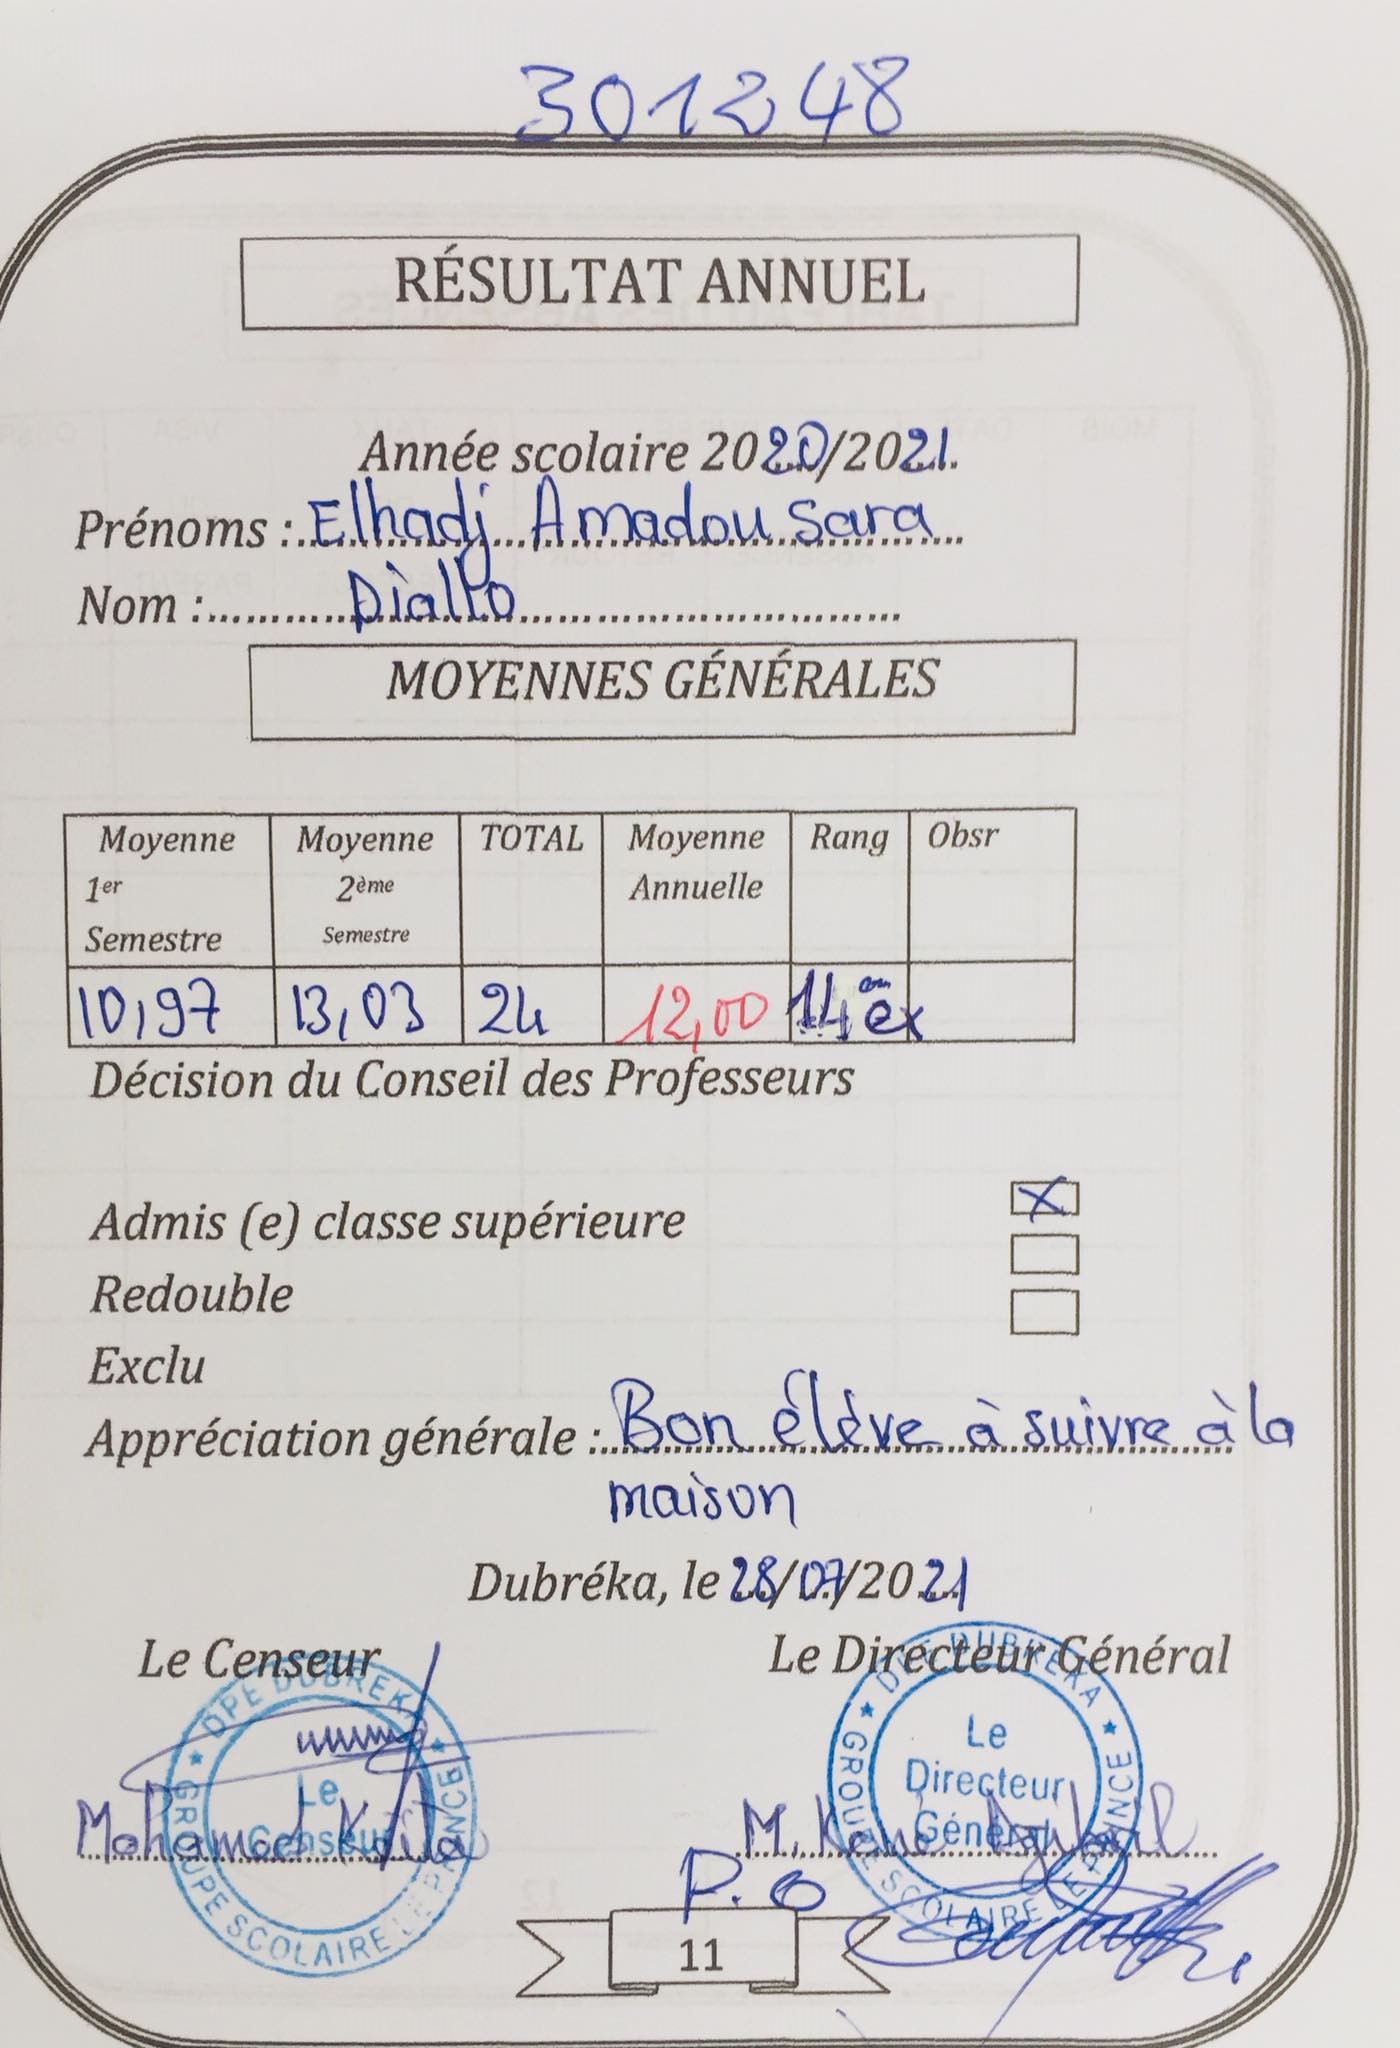 301248
RÉSULTAT ANNUEL
Année scolaire 2020/2021.
Prénoms : Elhadj Amadou Sara
Nom : Diallo
MOYENNES GÉNÉRALES
Moyenne 1er Semestre | Moyenne 2ème Semestre | TOTAL | Moyenne Annuelle | Rang | Obsr
10,97 | 13,03 | 24 | 12,00 | 14 ex
Décision du Conseil des Professeurs
Admis (e) classe supérieure X
Redouble
Exclu
Appréciation générale : Bon élève à suivre à la
maison
Dubréka, le 28/07/2021
Le Censeur Le Directeur Général
DPE DUBREKA
GROUPE SCOLAIRE LE PRINCE
Le
Censeur
Mohamed
DPE DUBREKA
GROUPE SCOLAIRE LE PRINCE
Le
Directeur
Général
M.
P.O
11